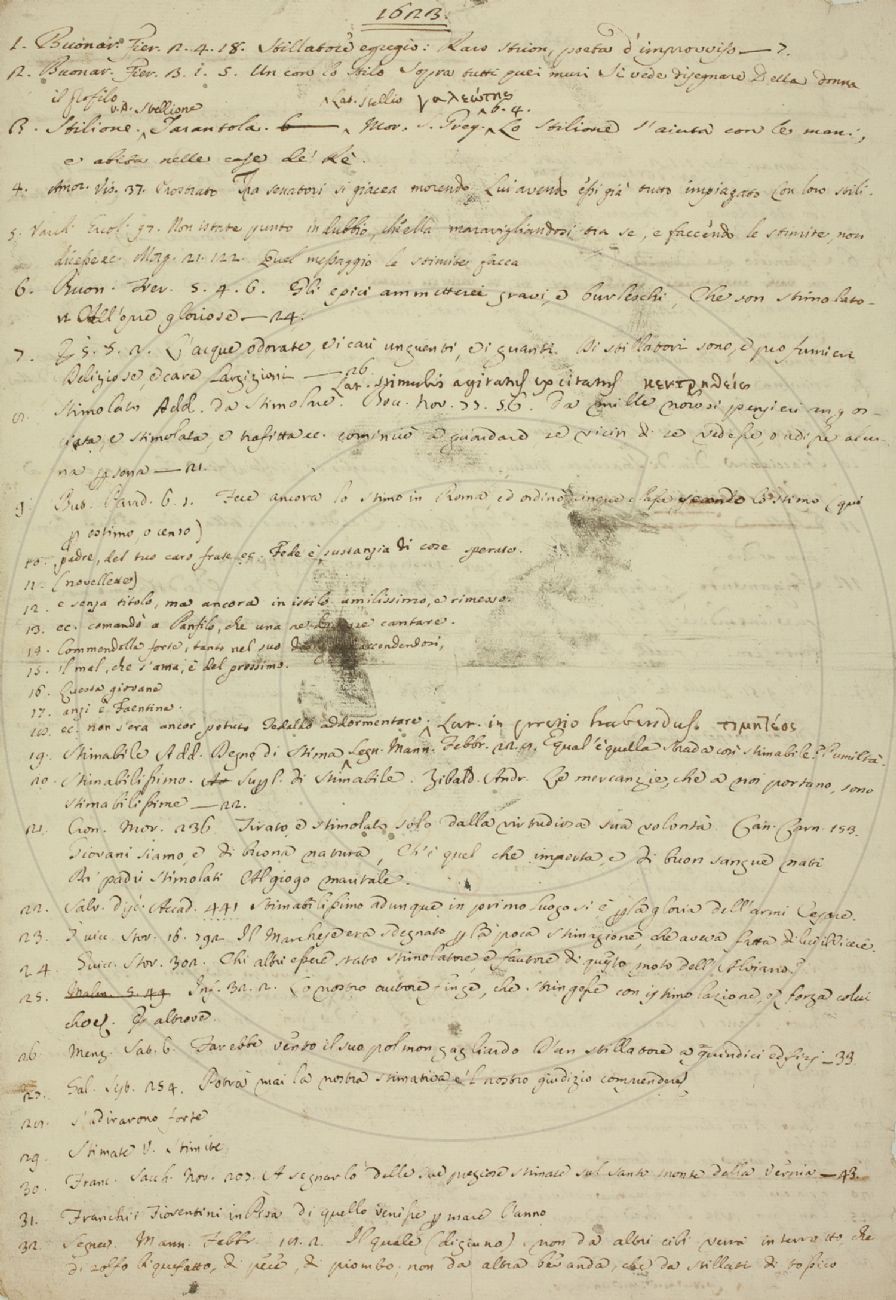 1623.
1. Buonar. Fier. 2. 4. 18. Stillatore egregio: Raro stuon, poeta d'improvviso — 7.
2. Buonar. Fier. 3. 1. 5. Un con lo stilo Sopra tutti quei muri Si vede disegnare Della donna
il profilo v. A. Stellione Lat. Stellio γαλεώτης
3. Stilione. Tarantola. Mor. S. Greg. 6. 4. Lo stilione s'aiuta con le mani,
e abita nelle case de' Re.
4. Amor. Vis. 37. Tra senatori si giacea morendo, Lui avendo essi già tutto impiagato Con loro stili.
5. Varch. Ercol. 97. Non istate punto in dubbio, ch'ella maravigliandosi tra se, e faccendo le stimite, non
dicesse ec. Morg. 21. 122. Quel messaggio le stimite facea
6. Buon. Fier. 5. 4. 6. Gli epici ammetterei gravi, e burleschi, Che son stimolato-
ri All'opre gloriose — 24.
7. E 5. 5. 2. L'acque odorate, e i cari unguenti, e i guanti Di stillatori sono, e profumieri
Deliziose, e care Largizioni — 26.
Lat. stimulis agitatus excitatus κεντρηθείς
8. Stimolato Add. da Stimolare. Bocc. Nov. 77. 56. Da mille noiosi pensieri angos-
ciata, e stimolata, e trafitta ec. cominciò a guardare se vicin di se vedesse, o udisse alcu-
na persona — 21.
9. But. Parad. 6. 1. Fece ancora lo stimo in Roma, ed ordinò cinque classe secondo lo stimo (qui
per estimo, o censo)
10. padre, del tuo caro frate ec. Fede è sustanzia di cose sperate.
11. (novellette)
12. e senza titolo, ma ancora in istilo umilissimo, e rimesso.
13. ec. comandò a Panfilo, che una ne cantare.
14. Commendolla forte, tanto nel suo accendendosi,
15. il mal, che s'ama, è del prossimo.
16. Questa giovane
17. anzi è Faentina.
18. ec. non s'era ancor potuto Tedaldo addormentare. Lat. in pretio habendus. τιμητέος
19. Stimabile Add. Degno di stima Segn. Mann. Febbr. 22. Equal'è quella strada così stimabile? L'umiltà.
20. Stimabilissimo. Superl. di Stimabile. Zibald. Andr. Le mercanzie, che a noi portano, sono
stimabilissime — 22.
21. Cron. Mor. 236. Tirato, e stimolato solo dalla virtudiosa sua volontà. Can. Carn. 153.
Giovani siamo, e di buona natura, Ch'è quel che importa e di buon sangue nati
Da' padri stimolati Al giogo maritale.
22. Salv. Disc. Accad. 441 Stimabilissimo adunque in primo luogo si è per la gloria dell'armi Cesare.
23. Guic. Stor. 16. 792. Il Marchese era sdegnato per la poca stimazione, che aveva fatta di lui il Vicere.
24. Guic. Stor. 302. Chi altri essere stato stimolatore, e fautore di questo moto dell'Alviano?
25. Malm. 5. 44 Inf. 32. 2. Lo nostro autore finge, che stringesse con istimolazione, e forza colui
che ec. E altrove
26. Menz. Sat. 6. Farebbe vento il suo polmon gagliardo D'un stillatore a quindici edifizj — 33
27. Gal. Sist. 254. Potrà mai la nostra stimativa, e'l nostro giudizio comprender
28. s'adiravono forte
29. Stimate V. Stimite
30. Franc. Sacch. Nov. 207. A segnarlo delle sue preziose stimate sul santo monte della Vernia — 43.
31. Franchi i Fiorentini in Pisa di quello venisse per mare l'anno
32. Segner. Mann. Febbr. 18. 2. Il quale (digiuno) non da altri cibi verrà interrotto, che
di zolfo liquefatto, di pece, di piombo; non da altra bevanda, che da stillati di tossico